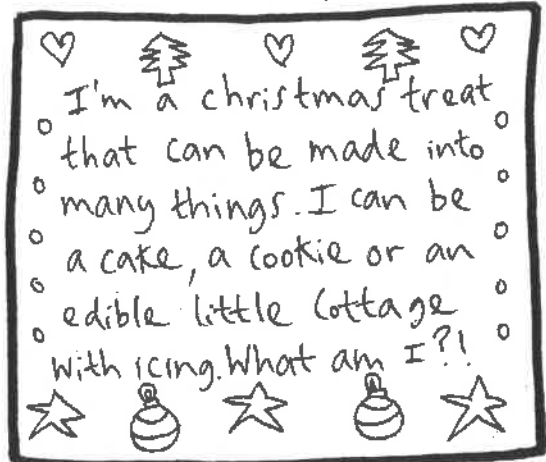 I'm a christmas treat
that can be made into
many things. I can be
a cake, a cookie or an
edible little cottage
with icing. What am I?!